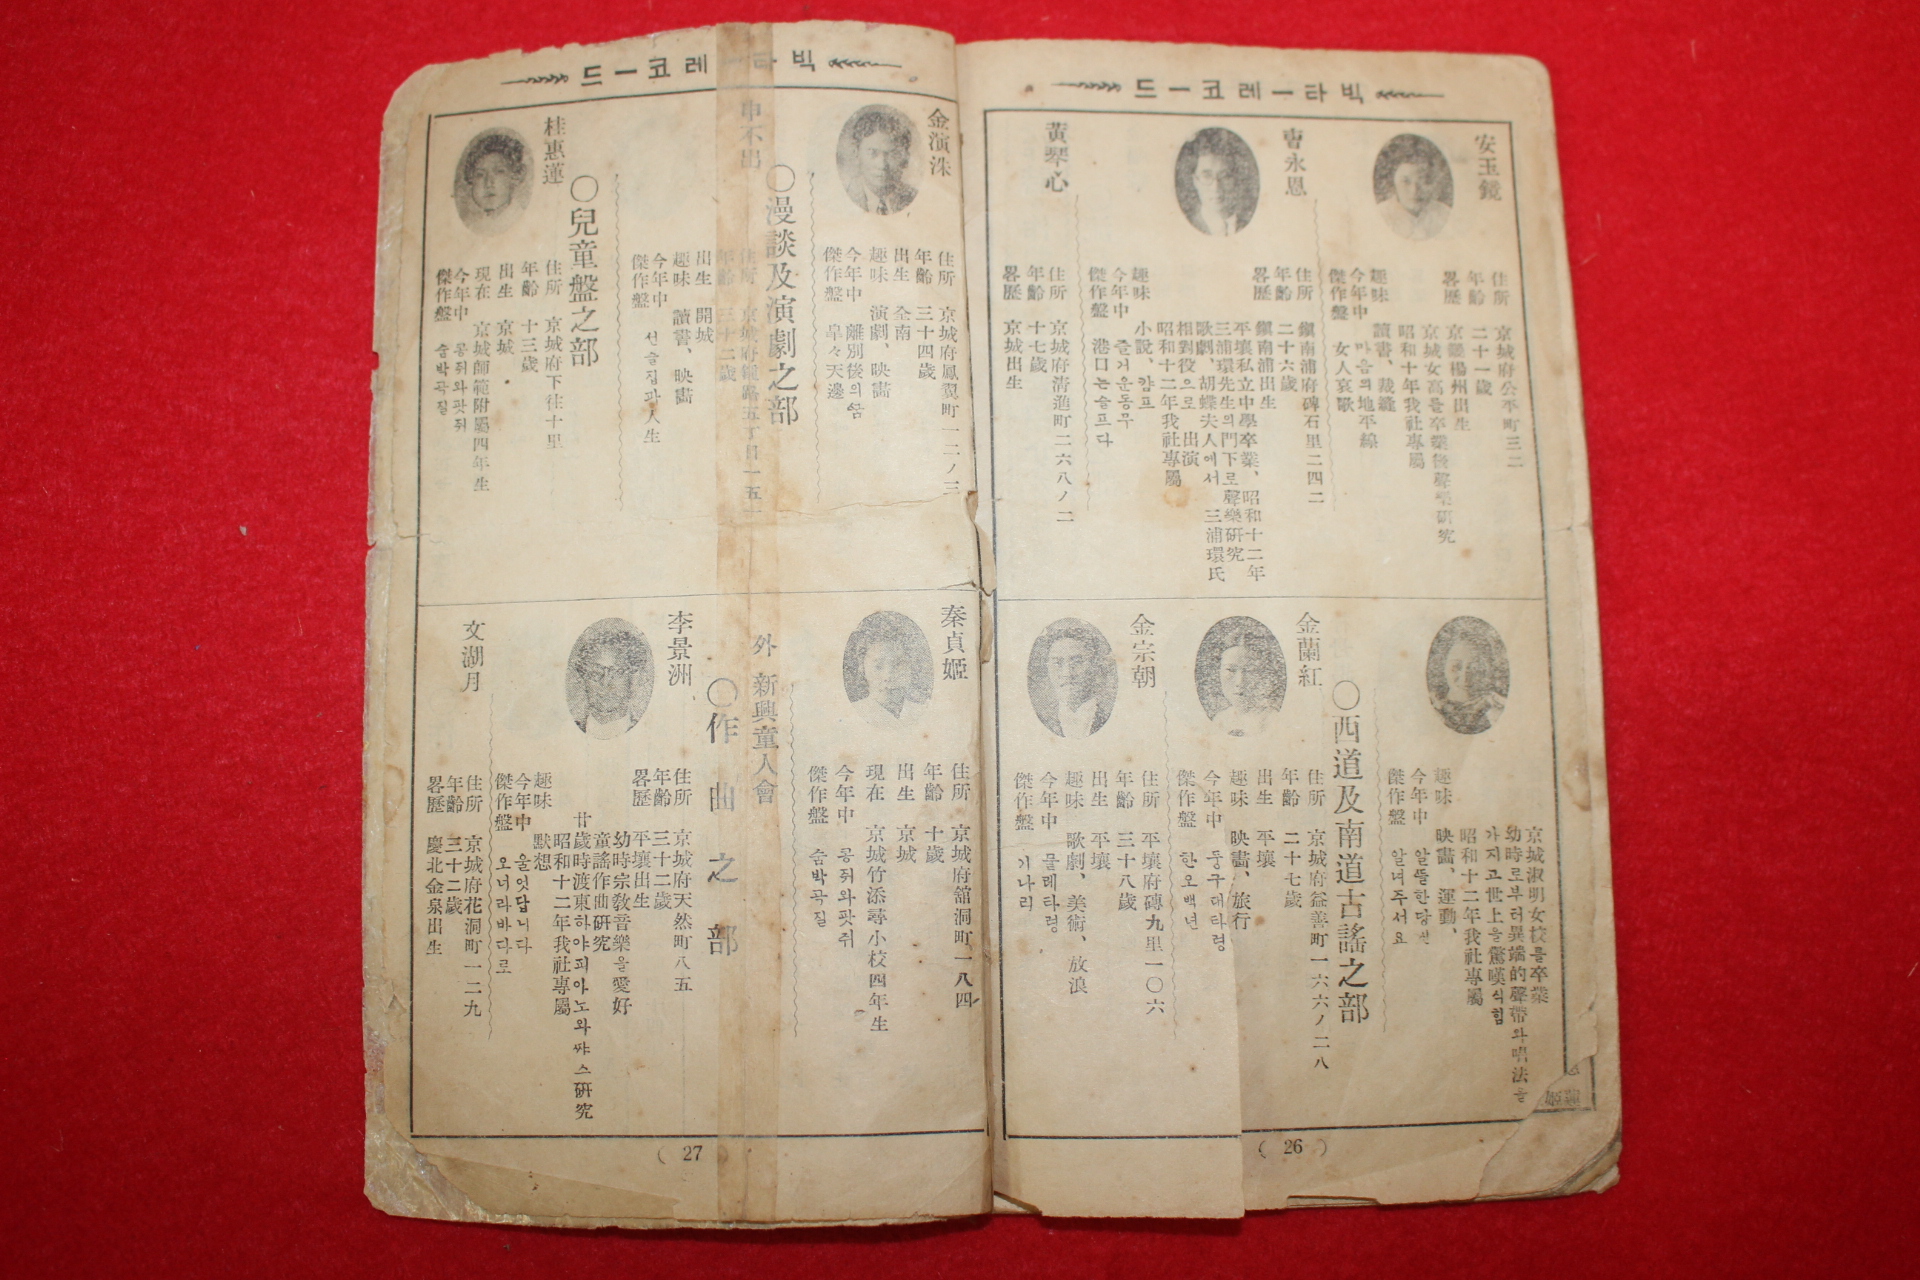 드ー코레ー타빅
安玉鏡
住所 京城府公平町三二
年齡 二十一歲
畧歷 京畿楊州出生
京城女高를卒業後聲樂研究
昭和十年我社專屬
趣味 讀書、裁縫
今年中
傑作盤 마음의地平線
女人哀歌
曹永恩
住所 鎭南浦府碑石里二四二
年齡 二十六歲
畧歷 鎭南浦出生
平壤私立中學卒業、昭和十二年
三浦環先生의門下로聲樂硏究
歌劇、胡蝶夫人에서 三浦環氏
相對役으로 出演
昭和十二年我社專屬
趣味 小說、캄프
今年中
傑作盤 즐거운동무
港口는슬프다
黃琴心
住所 京城府淸進町二六八ノ二
年齡 十七歲
畧歷 京城出生
京城淑明女校를卒業
幼時로부터異端的聲帶와唱法을
가지고世上을驚嘆식힘
昭和十二年我社專屬
趣味 映畵、運動、
今年中 알뜰한당신
傑作盤 알녀주서요
○西道及南道古謠之部
金蘭紅
住所 京城府益善町一六六ノ二八
年齡 二十七歲
出生 平壤
趣味 映畵、旅行
今年中 둥구대타령
傑作盤 한오백년
金宗朝
住所 平壤府磚九里一〇六
年齡 三十八歲
出生 平壤
趣味 歌劇、美術、放浪
今年中 물레타령
傑作盤 기나리
( 26 )
드ー코레ー타빅
金演洙
住所 京城府鳳翼町一二ノ三
年齡 三十四歲
出生 全南
趣味 演劇、映畵
今年中 離別後의
傑作盤 皐々天邊
○漫談及演劇之部
申不出
住所 京城府鍾路五丁目一五一
年齡 三十二歲
出生 開城
趣味 讀書、映畵
今年中
傑作盤 선술집과人生
○兒童盤之部
桂惠蓮
住所 京城府下往十里
年齡 十三歲
出生 京城
現在 京城師範附屬四年生
今年中 콩쥐와팟쥐
傑作盤 숨박곡질
秦貞姬
住所 京城府舘洞町一八四
年齡 十歲
出生 京城
現在 京城竹添尋小校四年生
今年中 콩쥐와팟쥐
傑作盤 숨박곡질
外 新興童人會
○作曲之部
李景洲
住所 京城府天然町八五
年齡 三十二歲
畧歷 平壤出生
幼時宗敎音樂을愛好
童謠作曲硏究
廿歲時渡東하야피아노와쨔스硏究
昭和十二年我社專屬
趣味 默想
今年中 울엇답니다
傑作盤 오너라바다로
文湖月
住所 京城府花洞町一二九
年齡 三十二歲
畧歷 慶北金泉出生
( 27